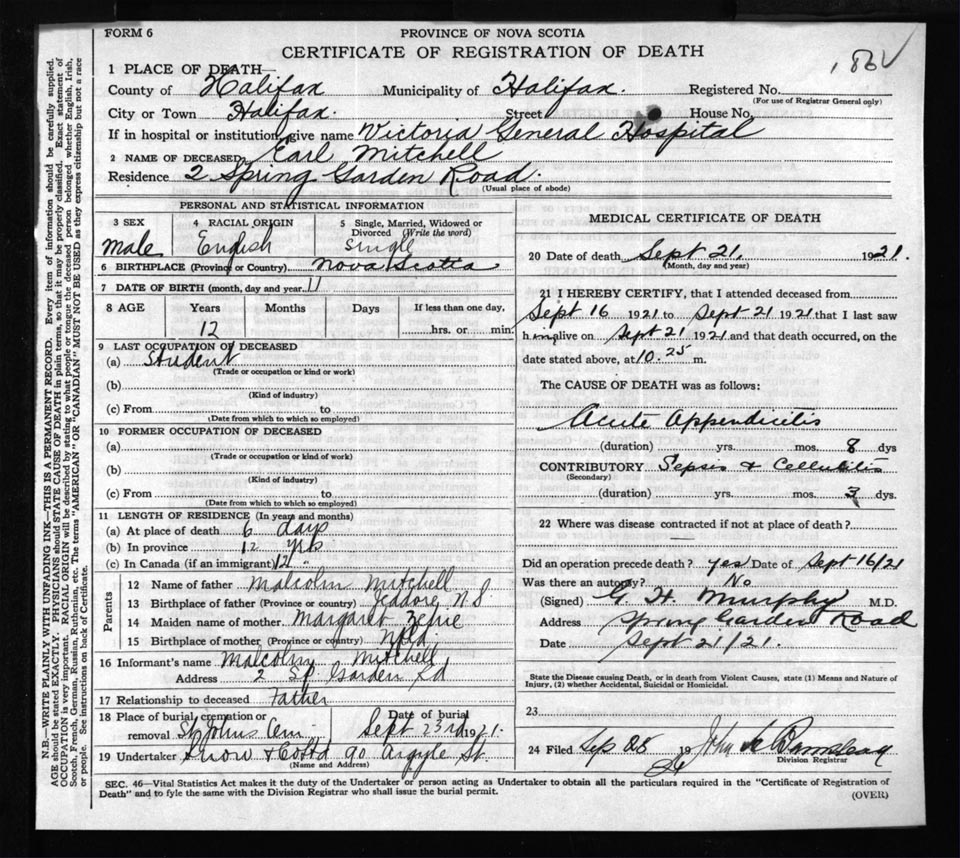 FORM 6
PROVINCE OF NOVA SCOTIA
CERTIFICATE OF REGISTRATION OF DEATH
1 PLACE OF DEATH
County of Halifax Municipality of Halifax. Registered No.
(For use of Registrar General only)
City or Town Halifax. Street House No.
If in hospital or institution, give name Victoria General Hospital
2 NAME OF DECEASED Earl Mitchell
Residence 2 Spring Garden Road.
(Usual place of abode)
PERSONAL AND STATISTICAL INFORMATION
3 SEX 4 RACIAL ORIGIN 5 Single, Married, Widowed or Divorced (Write the word)
Male English Single
6 BIRTHPLACE (Province or Country) Nova Scotia
7 DATE OF BIRTH (month, day and year)
8 AGE Years Months Days If less than one day,
12 hrs. or min.
9 LAST OCCUPATION OF DECEASED
(a) Student
(Trade or occupation or kind or work)
(b)
(Kind of industry)
(c) From to
(Date from which to which so employed)
10 FORMER OCCUPATION OF DECEASED
(a)
(Trade or occupation or kind of work)
(b)
(Kind of industry)
(c) From to
(Date from which to which so employed)
11 LENGTH OF RESIDENCE (In years and months)
(a) At place of death 6 days
(b) In province 12 yrs
(c) In Canada (if an immigrant) 12 "
Parents
12 Name of father Malcolm Mitchell
13 Birthplace of father (Province or country) Jeddore N S.
14 Maiden name of mother Margaret
15 Birthplace of mother (Province or country) Nfld.
16 Informant's name Malcolm Mitchell
Address 2 Sp. Garden Rd
17 Relationship to deceased Father
18 Place of burial, cremation or removal St Johns Cem Date of burial Sept 23rd 1921.
19 Undertaker Snow & Co Ltd 90 Argyle St
(Name and Address)
MEDICAL CERTIFICATE OF DEATH
20 Date of death Sept 21, 1921.
(Month, day and year)
21 I HEREBY CERTIFY, that I attended deceased from
Sept 16 1921 to Sept 21 1921 that I last saw
him alive on Sept 21 1921 and that death occurred, on the
date stated above, at 10.25 m.
The CAUSE OF DEATH was as follows:
Acute Appendicitis
(duration) yrs. mos. 8 dys
CONTRIBUTORY Sepsis & Cellulitis
(Secondary)
(duration) yrs. mos. 3 dys.
22 Where was disease contracted if not at place of death?
Did an operation precede death? yes Date of Sept 16/21
Was there an autopsy? No
(Signed) G. H. Murphy M.D.
Address Spring Garden Road
Date Sept 21/21.
State the Disease causing Death, or in death from Violent Causes, state (1) Means and Nature of
Injury, (2) whether Accidental, Suicidal or Homicidal.
23
24 Filed Sep 28 19
Division Registrar
SEC. 46—Vital Statistics Act makes it the duty of the Undertaker or person acting as Undertaker to obtain all the particulars required in the "Certificate of Registration of
Death" and to fyle the same with the Division Registrar who shall issue the burial permit.
(OVER)
N.B.—WRITE PLAINLY WITH UNFADING INK—THIS IS A PERMANENT RECORD. Every item of information should be carefully supplied.
AGE should be stated EXACTLY. PHYSICIANS should STATE CAUSE OF DEATH in plain terms, so that it may be properly classified. Exact statement of
OCCUPATION is very important. RACIAL ORIGIN will be described by stating to what people or tongue the deceased person belonged whether English, Irish,
Scotch, French, German, Russian, Ruthenian, etc. The terms "AMERICAN" OR "CANADIAN" MUST NOT BE USED as they express citizenship but not a race
or people. See instructions on back of Certificate.